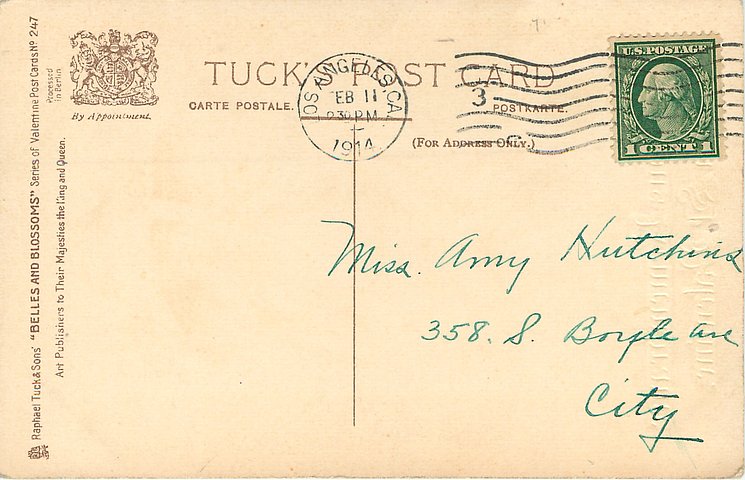 TUCK'S POST CARD
CARTE POSTALE.
POSTKARTE
(FOR ADDRESS ONLY.)
By Appointment.
LOS ANGELES, CA.
FEB 11
230 PM
1914
3
U.S. POSTAGE
1 CENT 1
Miss. Amy Hutchins
358. S. Boyle ave
City
Raphael Tuck & Sons' "BELLES AND BLOSSOMS" Series of Valentine Post Cards Nº 247
Processed
in Berlin
Art Publishers to Their Majesties the King and Queen.